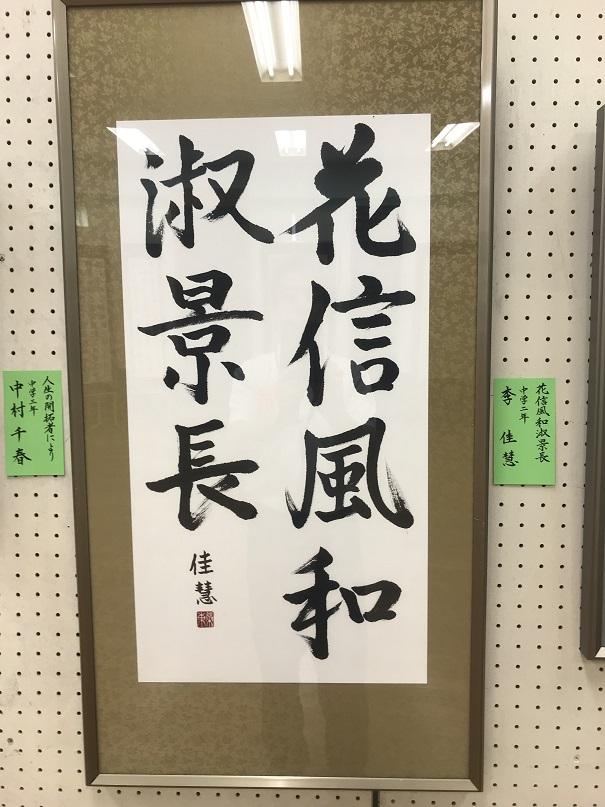 花信風和
淑景長
佳慧
花信風和淑景長
中学二年
李 佳慧
人生の開拓者により
中学二年
中村千春